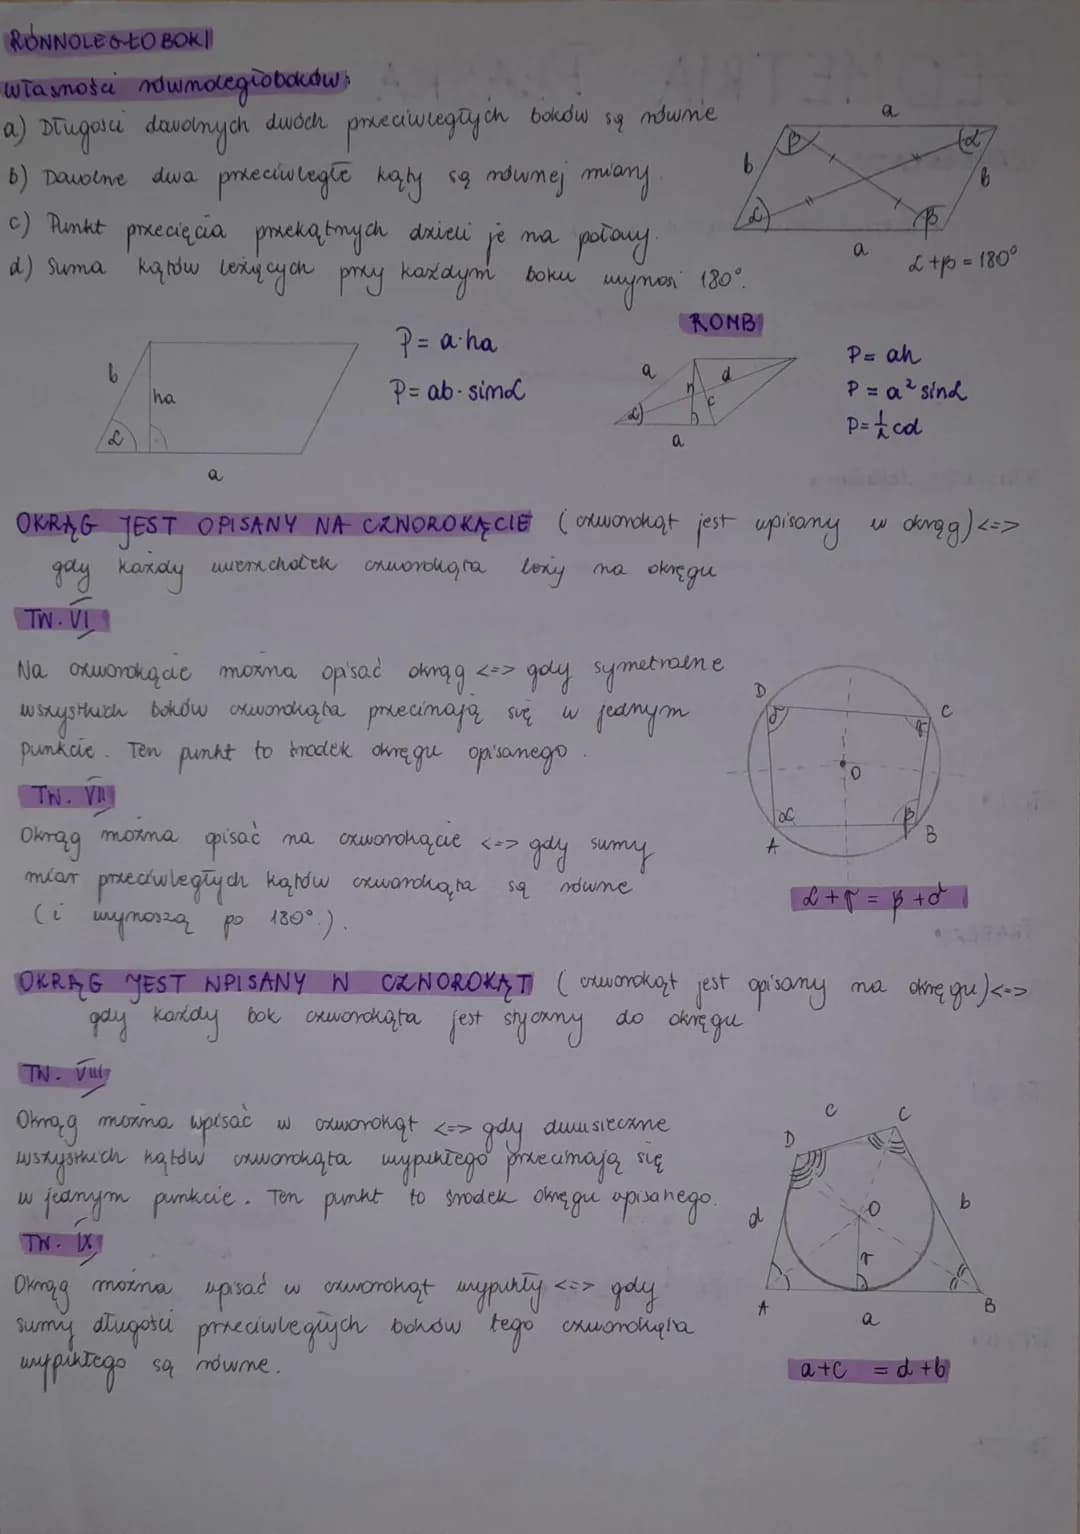 RÓWNOLEGŁOBOKI
Własności równoległoboków:
a) Długości dowolnych dwóch przeciwległych boków są równe
b) Dowolne dwa przeciwległe kąty są równej miary.
c) Punkt przecięcia przekątnych dzieli je na połowy.
d) Suma kątów leżących przy każdym boku wynosi 180°.
a
b
β
α
b
α
β
a
α+β = 180°
b
ha
α
a
P = a·ha
P = ab·sinα
ROMB
a
d
h
c
α
a
P = ah
P = a² sinα
P = ½ cd
OKRĄG JEST OPISANY NA CZWOROKĄCIE (czworokąt jest wpisany w okrąg) <=>
gdy każdy wierzchołek czworokąta leży na okręgu
TW. VI
Na czworokącie można opisać okrąg <=> gdy symetralne
wszystkich boków czworokąta przecinają się w jednym
punkcie. Ten punkt to środek okręgu opisanego.
D
C
δ
γ
O
α
β
A
B
TW. VII
Okrąg można opisać na czworokącie <=> gdy sumy
miar przeciwległych kątów czworokąta są równe
(i wynoszą po 180°.).
α+γ = β+δ
OKRĄG JEST WPISANY W CZWOROKĄT (czworokąt jest opisany na okręgu) <=>
gdy każdy bok czworokąta jest styczny do okręgu
TW. VIII
Okrąg można wpisać w czworokąt <=> gdy dwusieczne
wszystkich kątów czworokąta wypukłego przecinają się
w jednym punkcie. Ten punkt to środek okręgu wpisanego.
c
C
D
d
O
b
r
A
a
B
TW. IX
Okrąg można wpisać w czworokąt wypukły <=> gdy
sumy długości przeciwległych boków tego czworokąta
wypukłego są równe.
a+c = d+b